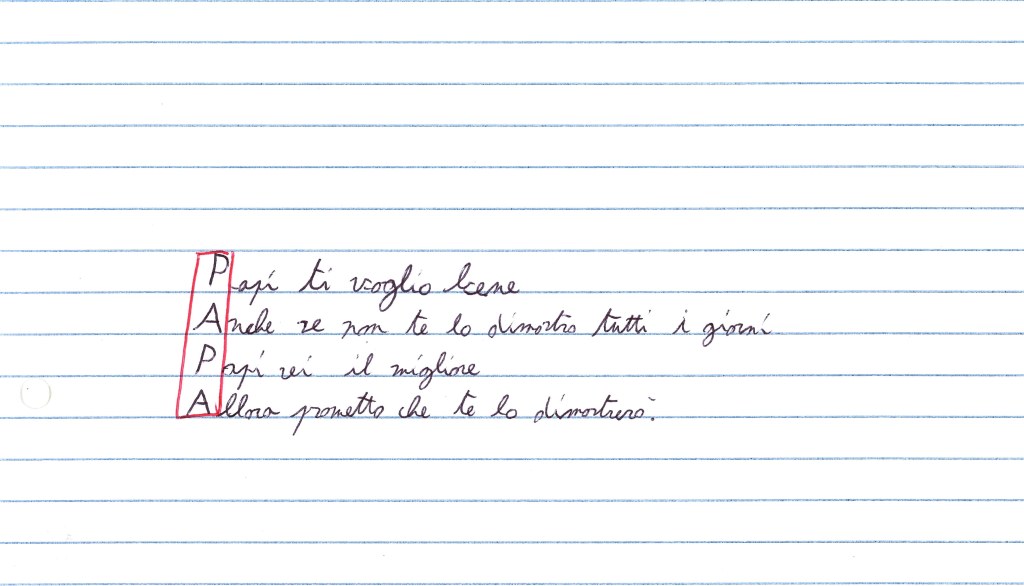 Papi ti voglio bene
Anche se non te lo dimostro tutti i giorni
Papi sei il migliore
Allora prometto che te lo dimostrerò.